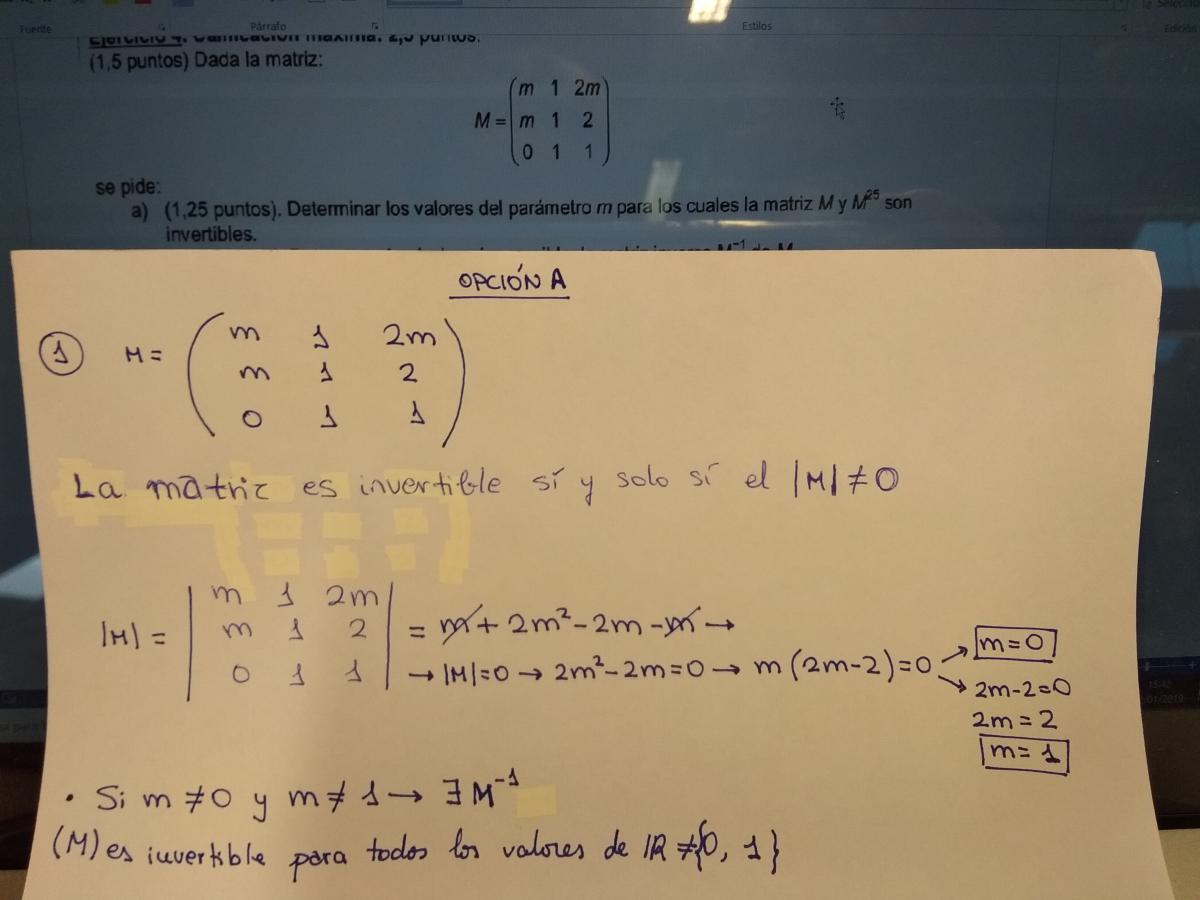 Fuente Párrafo Estilos Edición
Ejercicio 4. Calificación máxima: 2,5 puntos.
(1,5 puntos) Dada la matriz:
m 1 2m
M = m 1 2
0 1 1
se pide:
a) (1,25 puntos). Determinar los valores del parámetro m para los cuales la matriz M y M²⁵ son
invertibles.
M⁻¹ de M
OPCIÓN A
① M = m 1 2m
m 1 2
0 1 1
La matriz es invertible sí y solo sí el |M| ≠ 0
m 1 2m
|M| = m 1 2 = m + 2m² - 2m - m →
0 1 1 → |M|=0 → 2m² - 2m = 0 → m (2m-2) = 0 → m=0
→ 2m-2=0
2m = 2
m = 1
• Si m ≠ 0 y m ≠ 1 → ∃ M⁻¹
(M) es invertible para todos los valores de IR ≠ {0, 1}